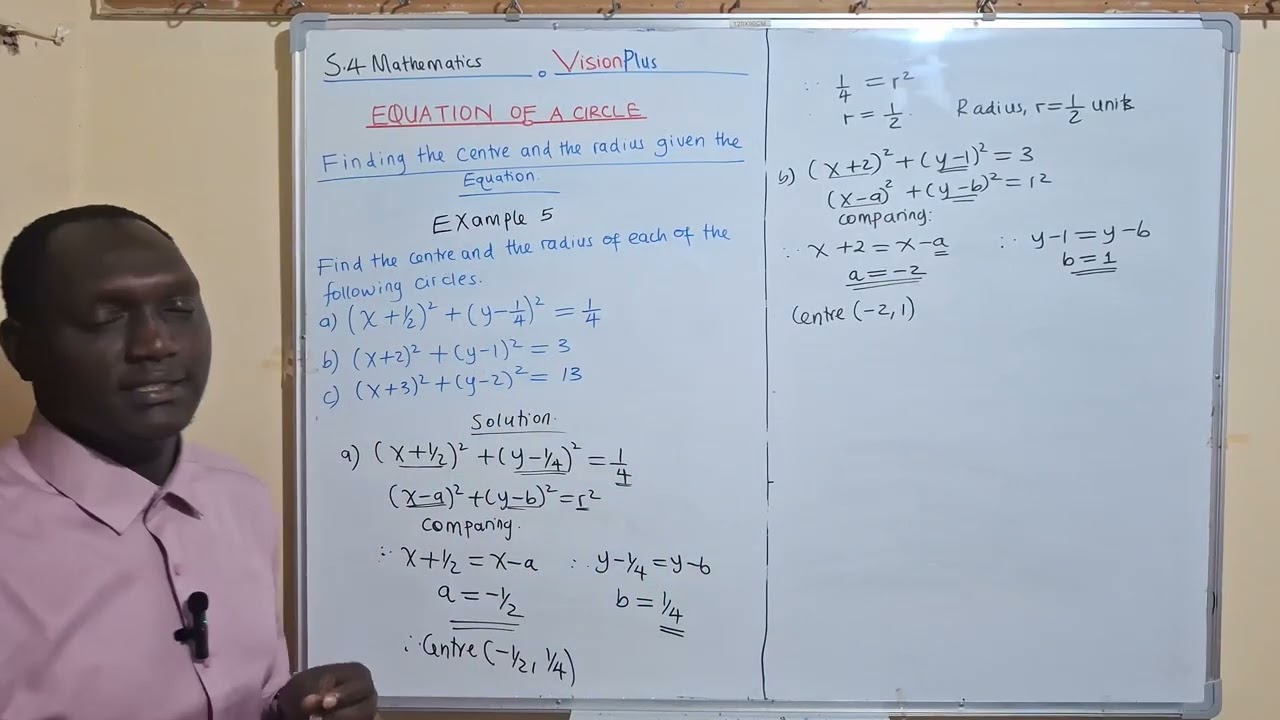 120X90CM
S.4 Mathematics VisionPlus
EQUATION OF A CIRCLE
Finding the Centre and the radius given the
Equation.
EXample 5
Find the centre and the radius of each of the
following circles.
a) (x+1/2)² + (y-1/4)² = 1/4
b) (x+2)² + (y-1)² = 3
c) (x+3)² + (y-2)² = 13
Solution.
a) (x+1/2)² + (y-1/4)² = 1/4
(x-a)² + (y-b)² = r²
comparing.
∴ x+1/2 = x-a ∴ y-1/4 = y-b
a = -1/2 b = 1/4
∴ Centre (-1/2, 1/4)
∴ 1/4 = r²
r = 1/2. Radius, r = 1/2 units
b) (x+2)² + (y-1)² = 3
(x-a)² + (y-b)² = r²
comparing:
∴ x+2 = x-a ∴ y-1 = y-b
a = -2 b = 1
Centre (-2, 1)